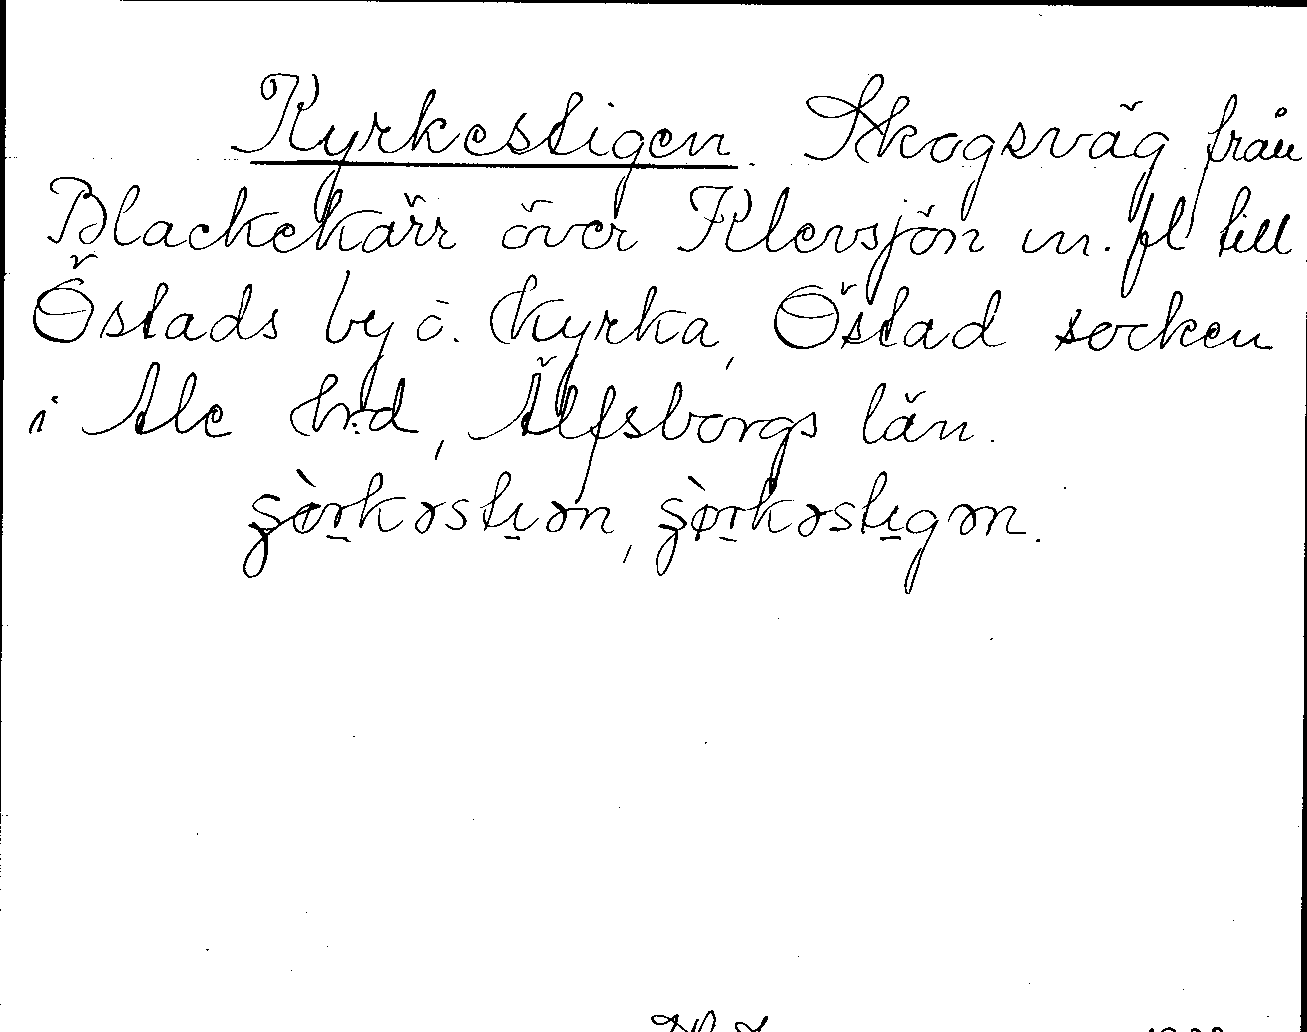 Kyrkestigen. Skogsväg från
Blackekärr över Klevsjön m. fl till
Östads by o. kyrka, Östad socken
i Ale hrd, Älfsborgs län.